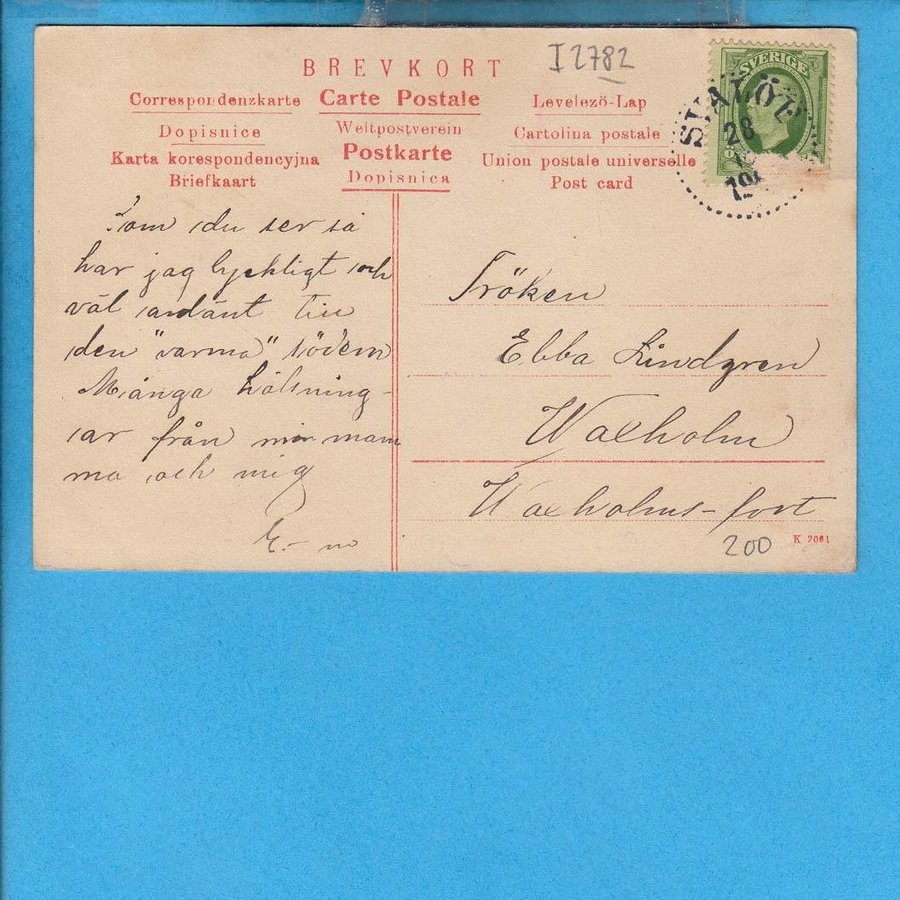 BREVKORT
I 2782
Correspondenzkarte Carte Postale Levelező-Lap
Dopisnice Weltpostverein Cartolina postale
Karta korespondencyjna Postkarte Union postale universelle
Briefkaart Dopisnica Post card
SVERIGE
SVALÖV
28
Som du ser så
har jag lyckligt och
väl anlänt till
den "varma" södern
Många hälsning-
ar från min mam
ma och mig
E.
Fröken
Ebba Lindgren
Waxholm
Waxholms-fort
200
K 2061